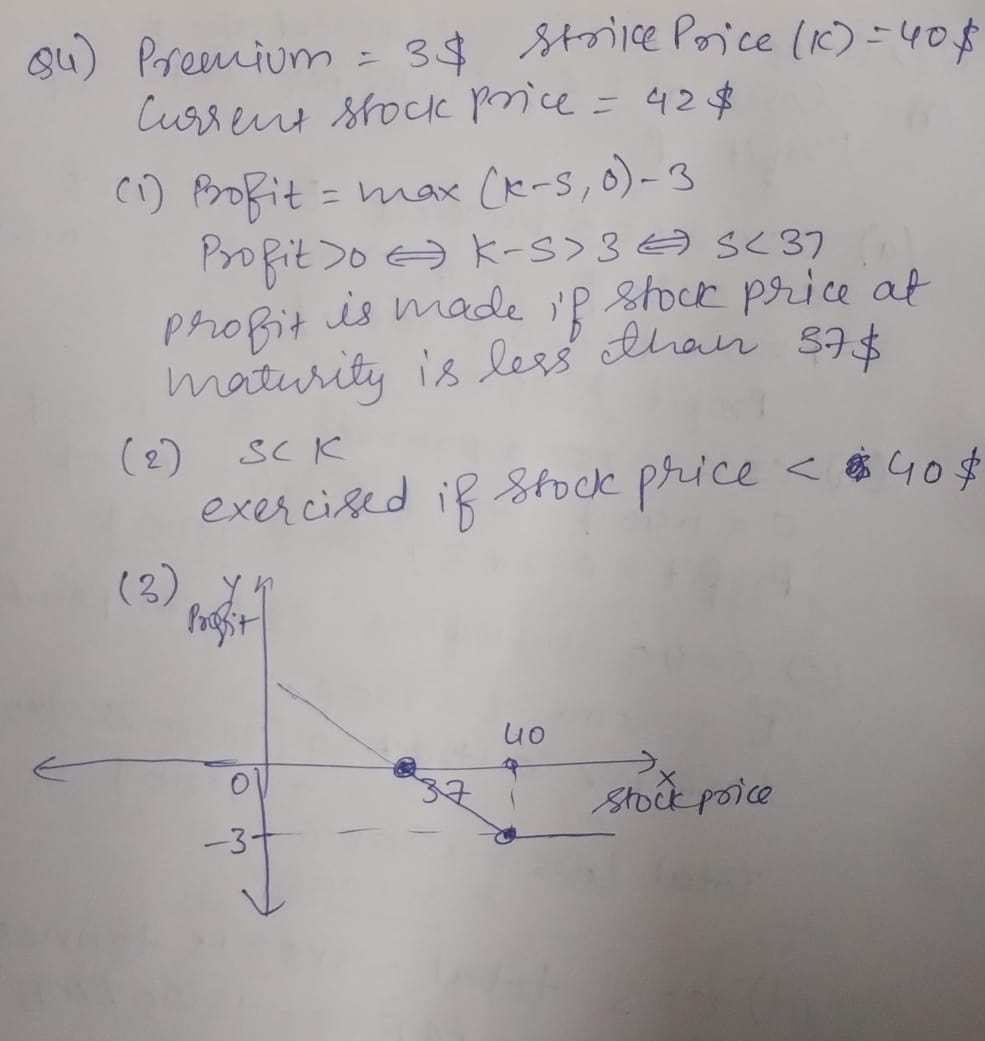 Q4) Premium = 3$ Strike Price (K) = 40$
Current stock price = 42$
(1) Profit = max (K-S, 0) - 3
Profit > 0 ⇔ K-S > 3 ⇔ S < 37
profit is made if stock price at
maturity is less than 37$
(2) S < K
exercised if stock price < 40$
(3) Y
Profit
40
0
37
X
Stock price
-3